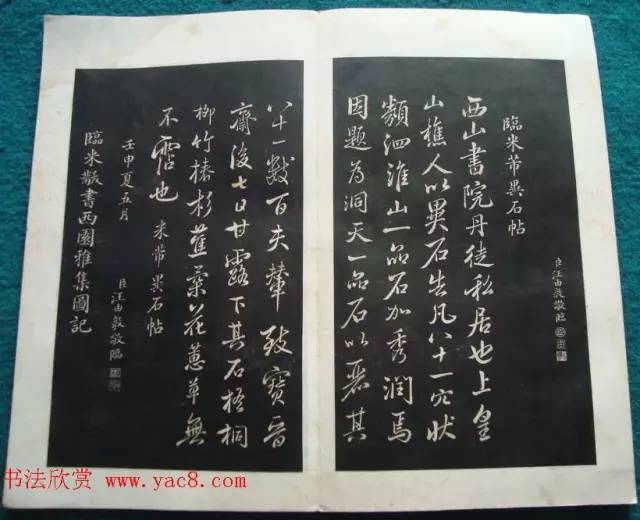 臨米芾異石帖
臣汪由敦敬臨
西山書院丹徒私居也上皇
山樵人以異石告凡八十一穴狀
類泗淮山一品石加秀潤焉
因題為洞天一品石以丑其
八十一數百夫輦致寶晉
齋後七日甘露下其石梧桐
柳竹椿杉蕉菜花蕙草無
不霑也 米芾異石帖
壬申夏五月 臣汪由敦敬臨
臨米黻書西園雅集圖記
书法欣赏 www.yac8.com